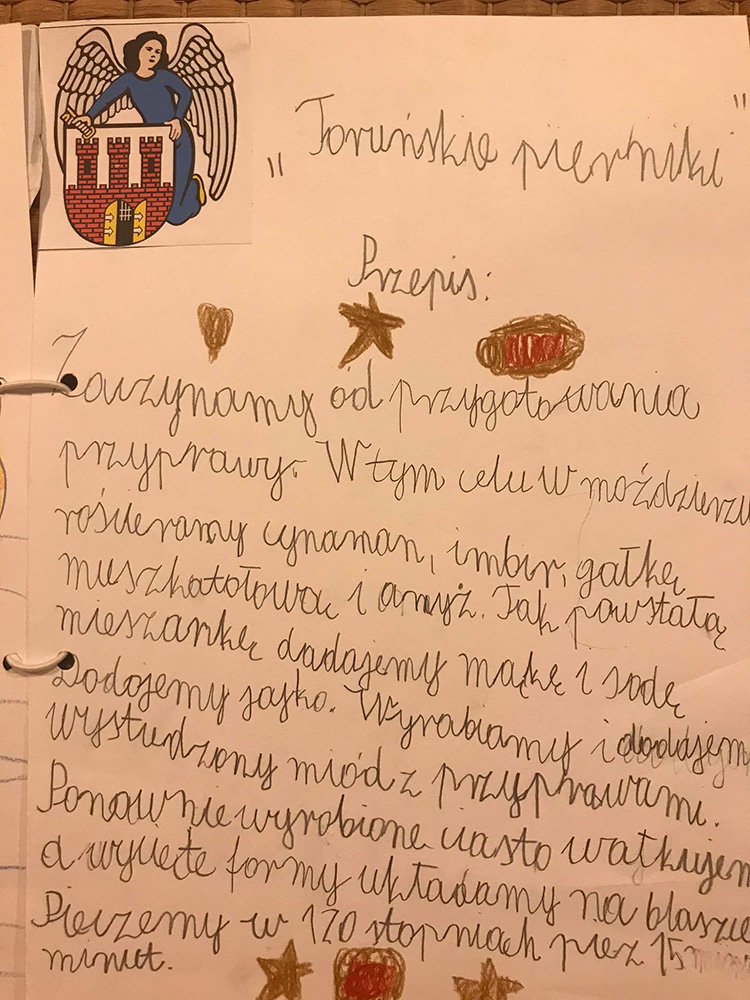 „Toruńskie pierniki"
Przepis:
Zaczynamy od przygotowania
przyprawy. W tym celu w moździerzu
rościeramy cynaman, imbir, gałkę
muszkatołową i anyż. Tak powstałą
mieszankę dodajemy mąkę i sodę
Dodajemy jajko. Wyrabiamy i dodajem
wystudzony miód z przyprawami.
Ponownie wyrobione ciasto wałkujem
a wycięte formy układamy na blaszce
Pieczemy w 170 stopniach przez 15
minut.